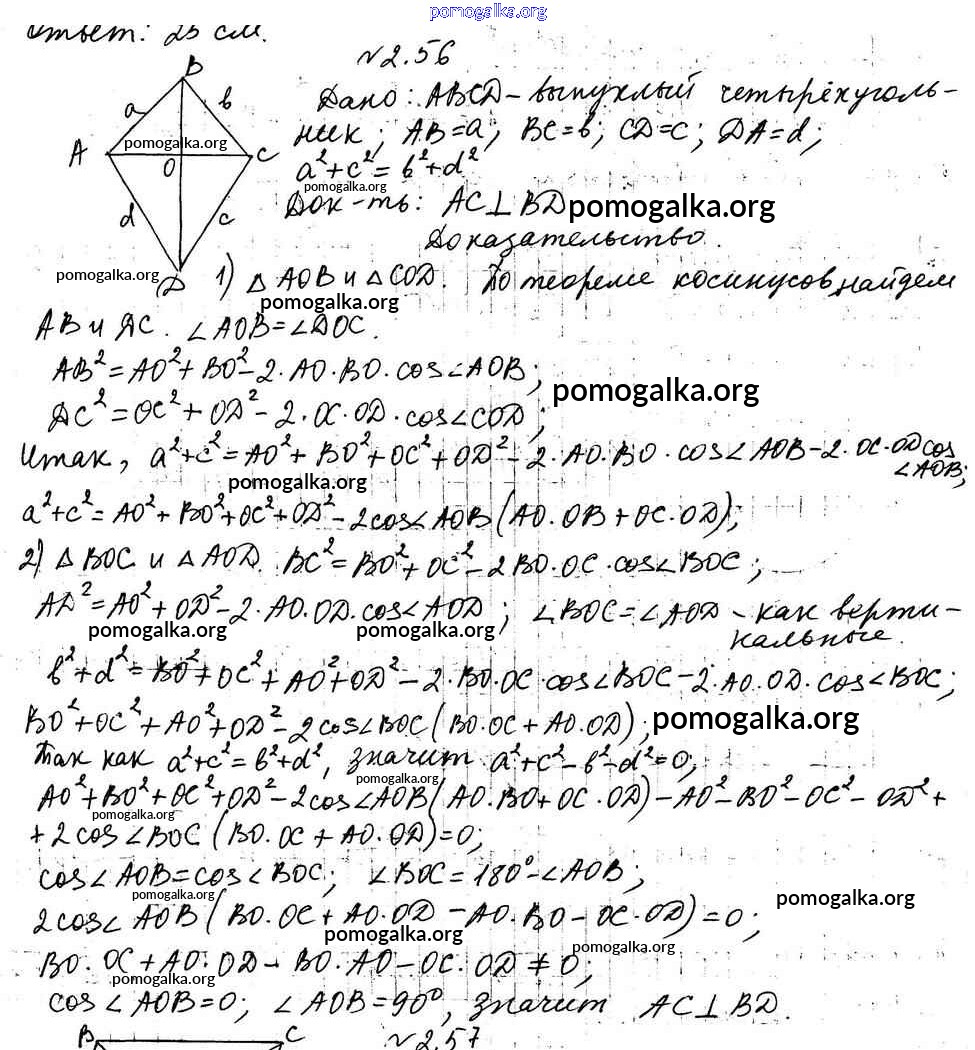 pomogalka.org
Ответ: 25 см.
№2.56
B
a b
Дано: ABCD – выпуклый четырёхуголь-
pomogalka.org
ник; AB=a; BC=b; CD=c; DA=d;
A O C
a²+c²=b²+d²
pomogalka.org
Док-ть: AC⊥BD
pomogalka.org
d c
Доказательство.
pomogalka.org
D
1) △AOB и △COD. По теореме косинусов, найдем
pomogalka.org
AB и ДС. ∠AOB=∠DOC.
AB²=AO²+BO²-2·AO·BO·cos∠AOB;
pomogalka.org
ДС²=OC²+OD²-2·OC·OD·cos∠COD;
Итак, a²+c²=AO²+BO²+OC²+OD²-2·AO·BO·cos∠AOB-2·OC·OD cos
∠AOB;
pomogalka.org
a²+c²=AO²+BO²+OC²+OD²-2cos∠AOB(AO·OB+OC·OD);
2) △BOC и △AOD. BC²=BO²+OC²-2BO·OC·cos∠BOC;
AD²=AO²+OD²-2·AO·OD·cos∠AOD; ∠BOC=∠AOD – как верти-
pomogalka.org pomogalka.org
кальные.
b²+d²=BO²+OC²+AO²+OD²-2·BO·OC·cos∠BOC-2·AO·OD·cos∠BOC;
BO²+OC²+AO²+OD²-2cos∠BOC(BO·OC+AO·OD);
pomogalka.org
Так как a²+c²=b²+d², значит a²+c²-b²-d²=0;
pomogalka.org
AO²+BO²+OC²+OD²-2cos∠AOB(AO·BO+OC·OD)-AO²-BO²-OC²-OD²+
pomogalka.org
+2cos∠BOC(BO·OC+AO·OD)=0;
cos∠AOB=cos∠BOC; ∠BOC=180°-∠AOB;
pomogalka.org pomogalka.org
2cos∠AOB(BO·OC+AO·OD-AO·BO-OC·OD)=0;
pomogalka.org pomogalka.org
BO·OC+AO·OD-BO·AO-OC·OD≠0;
pomogalka.org
cos∠AOB=0; ∠AOB=90°, значит AC⊥BD.
B C №2.57